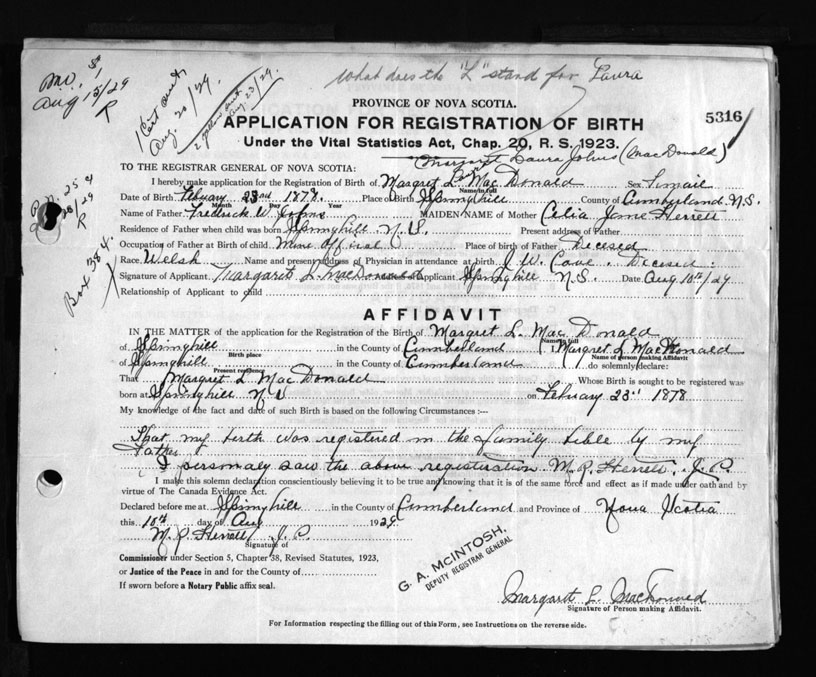 What does the "L" stand for Laura
No. 1
Aug 15/29
R
1 Cert sent
Aug. 20/29.
Aug 23/29.
PROVINCE OF NOVA SCOTIA.
5316
APPLICATION FOR REGISTRATION OF BIRTH
Under the Vital Statistics Act, Chap. 20, R. S. 1923.
Margaret Laura Johns (MacDonald)
TO THE REGISTRAR GENERAL OF NOVA SCOTIA:
I hereby make application for the Registration of Birth of Margret L. Mac Donald Sex Fimail
Name in full
Date of Birth Febuary 23rd 1878. Place of Birth Springhill County of Cumberland N.S.
Month Day Year
Name of Father Fredrick W. Johns MAIDEN NAME of Mother Celia Jane Herrett
Residence of Father when child was born Springhill N.S. Present address of Father
Occupation of Father at Birth of child Mine official Place of birth of Father Decised
Race Welsh Name and present address of Physician in attendance at birth J. W. Cove. Decised.
Signature of Applicant Margaret L. MacDonald Applicant Springhill N.S. Date Aug. 10th/29
Relationship of Applicant to child
Box 384.
AFFIDAVIT
IN THE MATTER of the application for the Registration of the Birth of Margret L. Mac Donald
Name in full
of Springhill in the County of Cumberland I Margret L MacDonald
Birth place Name of person making Affidavit
of Springhill in the County of Cumberland do solemnly declare:
Present residence
That Margret L MacDonald Whose Birth is sought to be registered was
born at Springhill N.S on Febuary 23rd 1878
My knowledge of the fact and date of such Birth is based on the following Circumstances :—
That my birth was registered in the family bible by my
Father
I personaly saw the above registration. M. P. Herrett. J. P.
I make this solemn declaration conscientiously believing it to be true and knowing that it is of the same force and effect as if made under oath and by
virtue of The Canada Evidence Act.
Declared before me at Springhill in the County of Cumberland and Province of Nova Scotia
this 10th day of Aug 1929
M. P Herrett J. P.
Signature of
Commissioner under Section 5, Chapter 38, Revised Statutes, 1923,
or Justice of the Peace in and for the County of
If sworn before a Notary Public affix seal.
G. A. McINTOSH,
DEPUTY REGISTRAR GENERAL
Margaret L. MacDonald
Signature of Person making Affidavit.
For Information respecting the filling out of this Form, see Instructions on the reverse side.